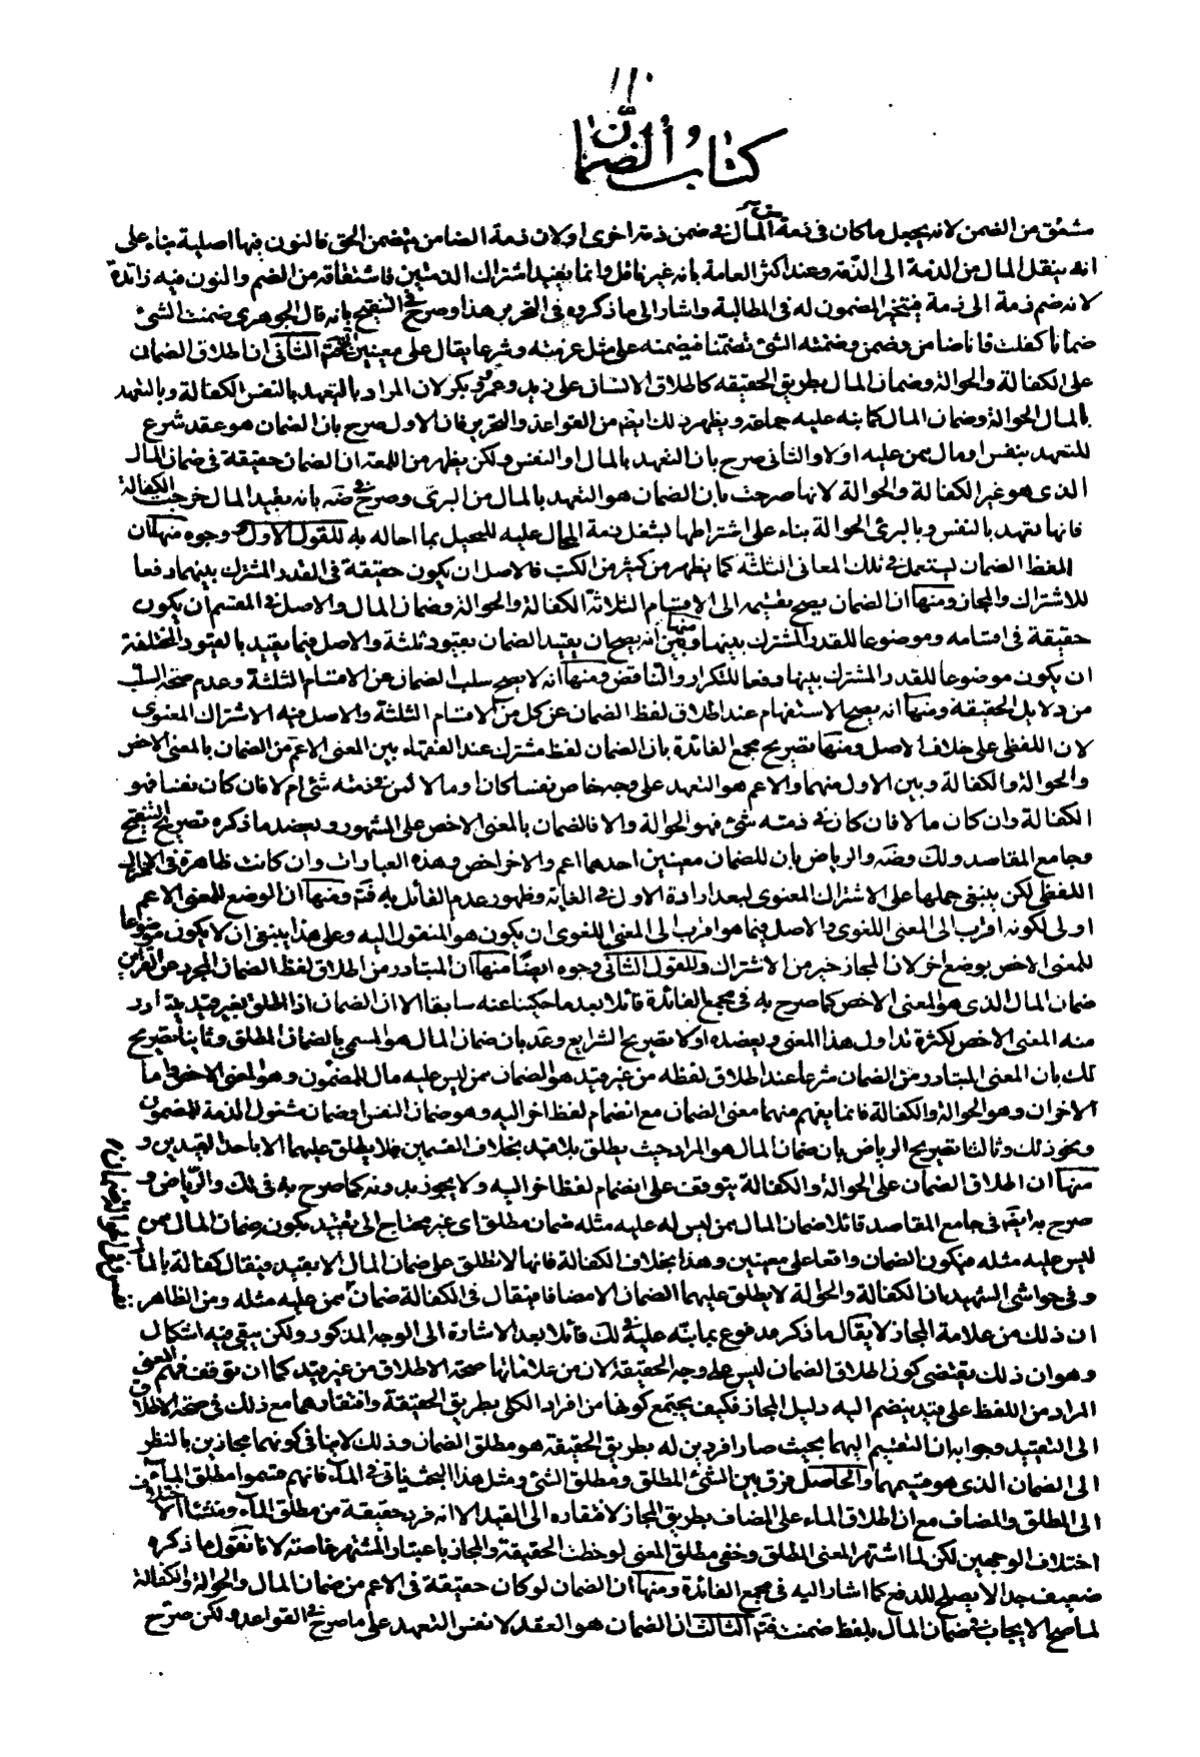 ١١٠
كتاب الضمان
مشتق من الضمن لانه يجعل ما كان فى ذمة من المال فى ضمن ذمة اخرى او لان ذمة الضامن يتضمن الحق فالنون فيها اصلية بناء على
انه ينقل المال من الذمة الى الذمة وعند اكثر العامة بانه غير ناقل وانما يفيد اشتراك الذمتين فاشتقاقه من الضم والنون فيه زائدة
لانه ضم ذمة الى ذمة فيتخير المضمون له فى المطالبة واشار الى ما ذكروه فى التحرير هذا وصرح فى التنقيح بانه قال الجوهرى ضمنت الشئ
ضمانا كفلت فانا ضامن وضمين وضمنته الشئ تضمنا فيضمنه على مثل غرمته وشرعا يقال على معنيين ثم الثانى ان اطلاق الضمان
على الكفالة والحوالة وضمان المال بطريق الحقيقه كاطلاق الانسان على زيد وعمرو وبكر لان المراد بالتعهد بالنفس الكفالة وبالتعهد
بالمال الحوالة وضمان المال كما نبه عليه جماعة ويظهر ذلك ايضا من القواعد والتحرير فان الاول صرح بان الضمان هو عقد شرع
للتعهد بنفس او مال ممن عليه اولا والثانى صرح بان التعهد بالمال او النفس ولكن يظهر من اللمعة ان الضمان حقيقة فى ضمان المال
الذى هو غير الكفالة والحوالة لانها صرحت بان الضمان هو التعهد بالمال من البرئ وصرح فى ضه بانه بقيد المال خرجت الكفالة
فانها تعهد بالنفس وبالبرئ الحوالة بناء على اشتراطها بشغل ذمة المحال عليه للمحيل بما احاله به للقول الاول وجوه منها ان
لفظ الضمان يستعمل فى تلك المعانى الثلثة كما يظهر من كثير من الكتب فالاصل ان يكون حقيقة فى القدر المشترك بينها دفعا
للاشتراك والمجاز ومنها ان الضمان يصح تقسيمه الى الاقسام الثلاثة الكفالة والحوالة وضمان المال والاصل فى المقسم ان يكون
حقيقة فى اقسامه وموضوعا للقدر المشترك بينها ومنها انه يصح ان يقيد الضمان بقيود ثلثة والاصل فيما يقيد بالقيود المختلفة
ان يكون موضوعا للقدر المشترك بينها دفعا للتكرار والتناقض ومنها انه لا يصح سلب الضمان عن الاقسام الثلثة وعدم صحة السلب
من دلايل الحقيقة ومنها انه يصح الاستفهام عند اطلاق لفظ الضمان عن كل من الاقسام الثلثة والاصل فيه الاشتراك المعنوى
لان اللفظى على خلاف الاصل ومنها تصريح مجمع الفائدة بان الضمان لفظ مشترك عند الفقهاء بين المعنى الاعم من الضمان بالمعنى الاخص
والحوالة والكفالة وبين الاول منهما والاعم هو التعهد على وجه خاص نفسا كان او مالا لمن فى ذمته شئ ام لا فان كان نفسا فهو
الكفالة وان كان مالا فان كان فى ذمته شئ فهو الحوالة والا فالضمان بالمعنى الاخص على المشهور ويعضد ما ذكره تصريح التنقيح
وجامع المقاصد ولك وضه والرياض بان للضمان معنيين احدهما اعم والاخر اخص وهذه العبارات وان كانت ظاهرة فى الاشتراك
اللفظى لكن ينبغى حملها على الاشتراك المعنوى لبعد ارادة الاول فى الغاية وظهور عدم القائل به فتم ومنها ان الوضع للمعنى الاعم
اولى لكونه اقرب الى المعنى اللغوى والاصل فيما هو اقرب الى المعنى اللغوى ان يكون هو المنقول اليه وعلى هذا ينبغى ان لا يكون موضوعا
للمعنى الاخص بوضع اخر لان المجاز خير من الاشتراك وللقول الثانى وجوه ايضا منها ان المتبادر من اطلاق لفظ الضمان المجرد عن القراين
ضمان المال الذى هو المعنى الاخص كما صرح به فى مجمع الفائدة قائلا بعد ما حكينا عنه سابقا الا ان الضمان اذا اطلق بغير قيد يتبادر
منه المعنى الاخص لكثرة تداول هذا المعنى ويعضده اولا تصريح الشرايع وعد بان ضمان المال هو المسمى بالضمان المطلق وثانيا تصريح
لك بان المعنى المتبادر من الضمان شرعا عند اطلاق لفظه من غير قيد هو الضمان ممن ليس عليه مال للمضمون وهو المعنى الاخص واما
الاخران وهو الحوالة والكفالة فانما يفهم منهما معنى الضمان مع انضمام لفظ اخر اليه وهو ضمان النفس او ضمان مشغول الذمة للمضمون
ونحو ذلك وثالثا تصريح الرياض بان ضمان المال هو المراد حيث يطلق بلا قيد بخلاف القسمين فلا يطلق عليهما الا باحد القيدين و
منها ان اطلاق الضمان على الحوالة والكفالة يتوقف على انضمام لفظ اخر اليه ولا يجوز بدونه كما صرح به فى لك والرياض و
صرح به ايضا فى جامع المقاصد قائلا ضمان المال ممن ليس له عليه مثله ضمان مطلق اى غير محتاج الى تقييد بكون ضمان المال من
ليس عليه مثله فيكون الضمان واقعا على معنيين وهذا بخلاف الكفالة فانها لا تطلق على ضمان المال الا بقيد فيقال كفالة بالمال
وفى حواشى الشهيد بان الكفالة والحوالة لا يطلق عليهما الضمان الا مضافا فيقال فى الكفالة ضمان ممن عليه مثله ومن الظاهر
ان ذلك من علامة المجاز لا يقال ما ذكر مدفوع بما نبه عليه فى لك قائلا بعد الاشارة الى الوجه المذكور ولكن يبقى فيه اشكال
وهو ان ذلك يقتضى كون اطلاق الضمان ليس على وجه الحقيقة لان من علاماتها صحة الاطلاق من غير قيد كما ان توقف فهم المعنى
المراد من اللفظ على قيد ينضم اليه دليل المجاز فكيف يجتمع كونها من افراد الكلى بطريق الحقيقة وافتقارهما مع ذلك فى صحة الاطلاق
الى التقييد وجوابه ان التقسيم اليهما بحيث صارا فردين له بطريق الحقيقة هو مطلق الضمان وذلك لا ينافى كونهما مجازين بالنظر
الى الضمان الذى هو قسيمهما والحاصل فرق بين الشئ المطلق ومطلق الشئ ومثل هذا البحث ياتى فى الماء فانهم قسموا مطلق الماء
الى المطلق والمضاف مع ان اطلاق الماء على المضاف بطريق المجاز لافتقاره الى القيد الا انه فرد حقيقة من مطلق الماء ومنشأ الاختلاف
اختلاف الوجهين لكن لما اشتهر المعنى المطلق وخفى مطلق المعنى لوحظت الحقيقة والمجاز باعتبار المشتهر خاصة لانا نقول ما ذكره
ضعيف جدا لا يصلح للدفع كما اشار اليه فى مجمع الفائدة ومنها ان الضمان لو كان حقيقة فى الاعم من ضمان المال والحوالة والكفالة
لما صح الايجاب فى ضمان المال بلفظ ضمنت فتم الثالث ان الضمان هو العقد لا نفس التعهد على ما صرح فى القواعد ولكن صرح